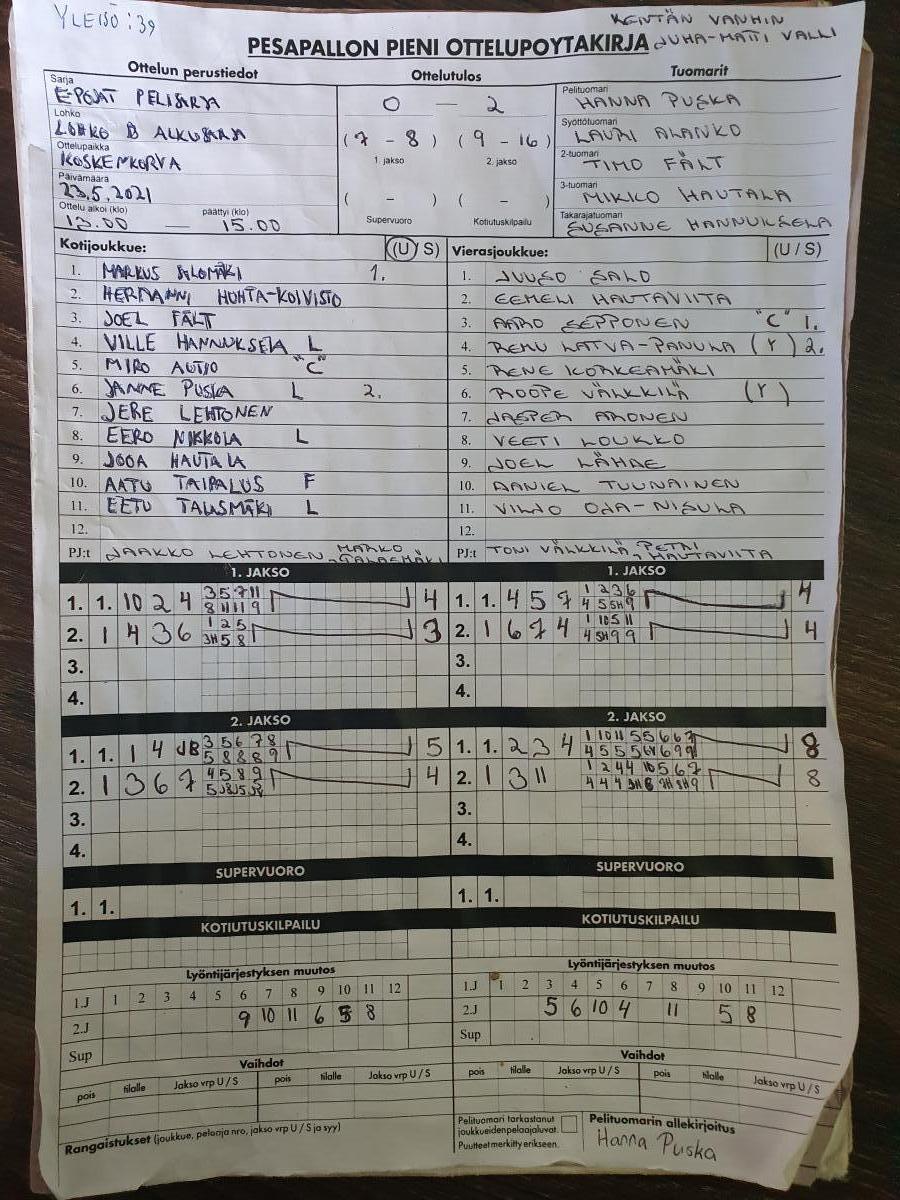 YLEISÖ: 39
KENTÄN VANHIN
JUHA-MATTI VALLI
PESAPALLON PIENI OTTELUPOYTAKIRJA
Ottelun perustiedot
Ottelutulos
Tuomarit
Sarja
E-POJAT PELISARJA
Lohko
LOHKO B ALKUSARJA
Ottelupaikka
KOSKENKORVA
Päivämäärä
23.5.2021
Ottelu alkoi (klo) päättyi (klo)
13.00 — 15.00
0 — 2
(7 - 8) (9 - 16)
1. jakso 2. jakso
( - ) ( - )
Supervuoro Kotiutuskilpailu
Pelituomari
HANNA PUSKA
Syöttötuomari
LAURI ALANKO
2-tuomari
TIMO FÄLT
3-tuomari
MIKKO HAUTALA
Takarajatuomari
SUSANNE HANNUKSELA
Kotijoukkue: (U/S)
1. MARKUS SALOMÄKI 1.
2. HERMANNI HUHTA-KOIVISTO
3. JOEL FÄLT
4. VILLE HANNUKSELA L
5. MIRO AUTIO "C"
6. JANNE PUSKA L 2.
7. JERE LEHTONEN
8. EERO NIKKOLA L
9. JOOA HAUTALA
10. AATU TAIPALUS F
11. EETU TALASMÄKI L
12.
PJ:t JAAKKO LEHTONEN, MARKO
Vierasjoukkue: (U/S)
1. JUUSO SALO
2. EEMELI HAUTAVIITA
3. AARO SEPPONEN "C" 1.
4. REMU LATVA-PANULA (Y) 2.
5. RENE KORKEAMÄKI
6. ROOPE VÄLKKILÄ (Y)
7. JASPER ARONEN
8. VEETI LOUKKO
9. JOEL LÄHDE
10. DANIEL TUUNAINEN
11. VILJO OJA-NISULA
12.
PJ:t TONI VÄLKKILÄ, PETRI HAUTAVIITA
1. JAKSO
1. 1. 10 2 4 3 5 7 11
8 11 11 9 4
2. 1 4 3 6 1 2 5
3H 5 8 3
3.
4.
1. JAKSO
1. 1. 4 5 7 1 2 3 6
4 5 5H 9 4
2. 1 6 7 4 1 10 5 11
4 5H 9 9 4
3.
4.
2. JAKSO
1. 1. 1 4 JB 3 5 6 7 8
5 8 8 8 9 5
2. 1 3 6 7 4 5 8 9
4
3.
4.
2. JAKSO
1. 1. 2 3 4 1 10 11 5 5 6 6 7
8
2. 1 3 11 1 2 4 4 10 5 6 7
8
3.
4.
SUPERVUORO
1. 1.
SUPERVUORO
1. 1.
KOTIUTUSKILPAILU
KOTIUTUSKILPAILU
Lyöntijärjestyksen muutos
1.J 1 2 3 4 5 6 7 8 9 10 11 12
2.J 9 10 11 6 5 8
Sup
Lyöntijärjestyksen muutos
1.J 1 2 3 4 5 6 7 8 9 10 11 12
2.J 5 6 10 4 11 5 8
Sup
Vaihdot
pois tilalle Jakso vrp U / S pois tilalle Jakso vrp U / S
Vaihdot
pois tilalle Jakso vrp U / S pois tilalle Jakso vrp U / S
Rangaistukset (joukkue, pelaaja nro, jakso vrp U / S ja syy)
Pelituomari tarkastanut
joukkueiden pelaajaluvat.
Puutteet merkitty erikseen.
Pelituomarin allekirjoitus
Hanna Puska